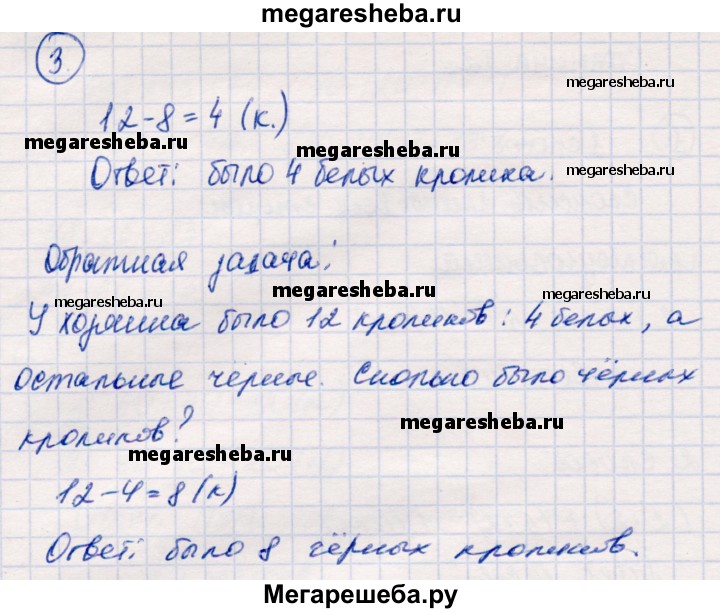 megaresheba.ru
3.
megaresheba.ru
12-8=4 (к.)
megaresheba.ru
megaresheba.ru
Ответ: было 4 белых кролика.
megaresheba.ru
Обратная задача:
megaresheba.ru
megaresheba.ru
У хозяина было 12 кроликов: 4 белых, а
остальные чёрные. Сколько было чёрных
megaresheba.ru
кроликов?
megaresheba.ru
12-4=8 (к)
Ответ: было 8 чёрных кроликов.
Мегарешеба.ру